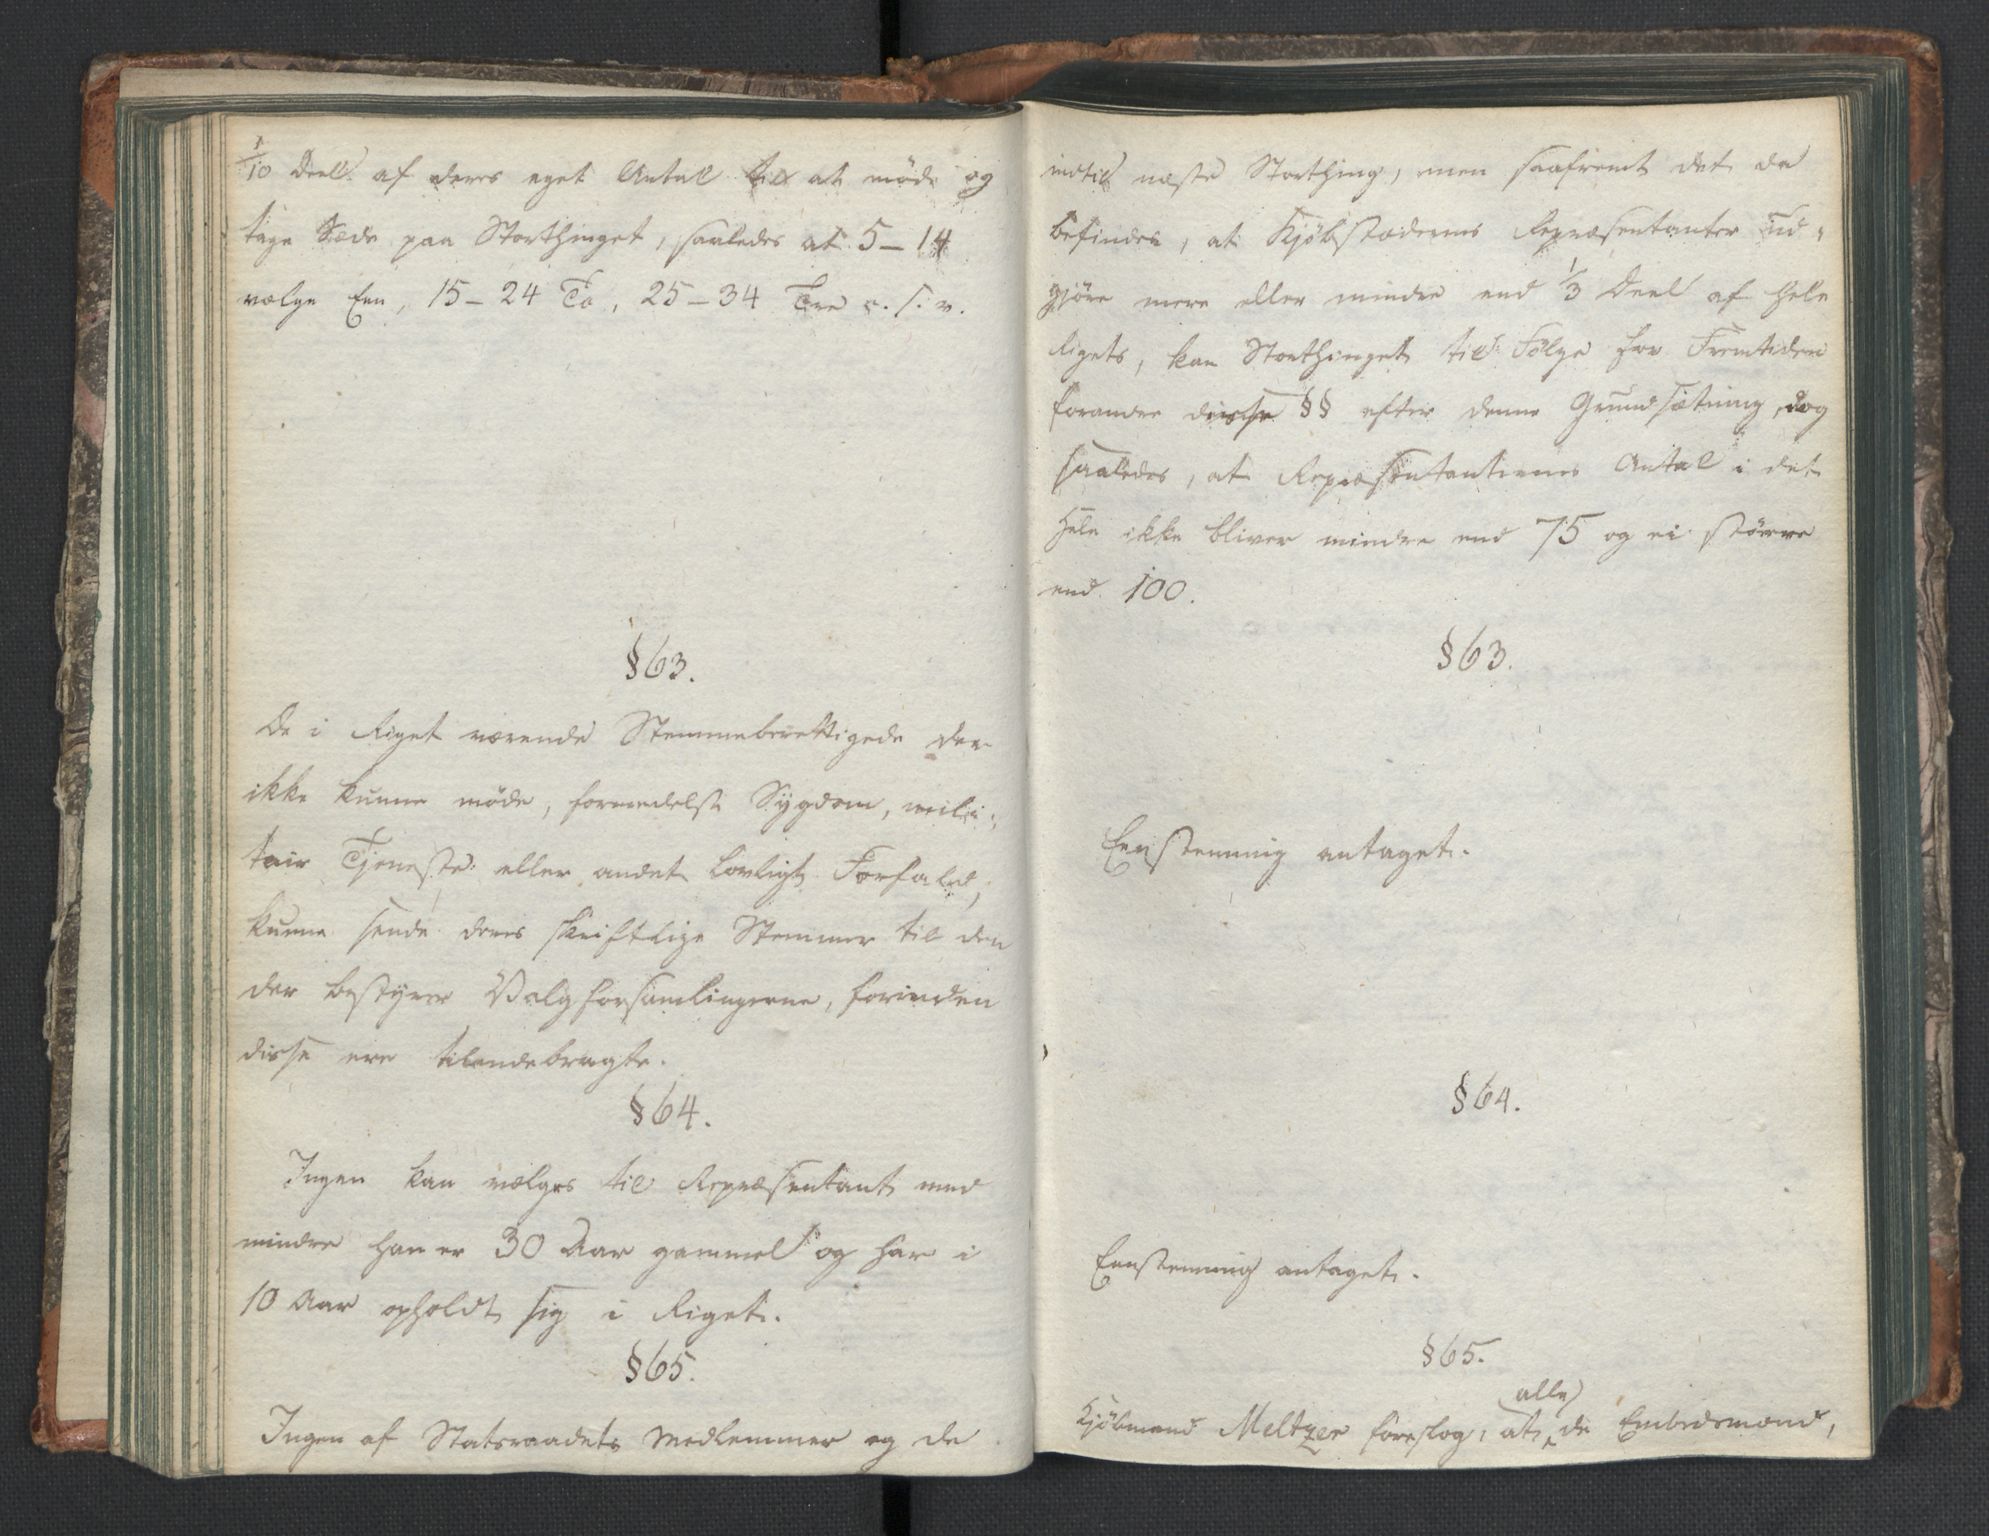 1/10 Deel af deres eget Antal til at møde og
tage Sæde paa Storthinget, saaledes at 5–14
vælge Een, 15–24 To, 25–34 Tre o. s. v.
§ 63.
De i Riget værende Stemmeberettigede der
ikke kunne møde, formedelst Sygdom, mili-
tair Tjeneste eller andet lovligt Forfald,
kunne sende deres skriftlige Stemmer til den
der bestyrer Valgforsamlingerne, forinden
disse ere tilendebragte.
§ 64.
Ingen kan vælges til Repræsentant med
mindre han er 30 Aar gammel og har i
10 Aar opholdt sig i Riget.
§ 65.
Ingen af Statsraadets Medlemmer og de
indtil næste Storthing, men saafremt det da
befindes, at Kjøbstædernes Repræsentanter ud-
gjøre mere eller mindre end 1/3 Deel af hele
Rigets, kan Storthinget til Følge for Fremtiden
forandre disse §§ efter denne Grundsætning, dog
saaledes, at Repræsentanternes Antal i det
Hele ikke bliver mindre end 75 og ei større
end 100.
§ 63.
Eenstemmig antaget.
§ 64.
Eenstemmig antaget.
§ 65.
alle
Kjøbmand Meltzer foreslog, at de Embedsmænd,